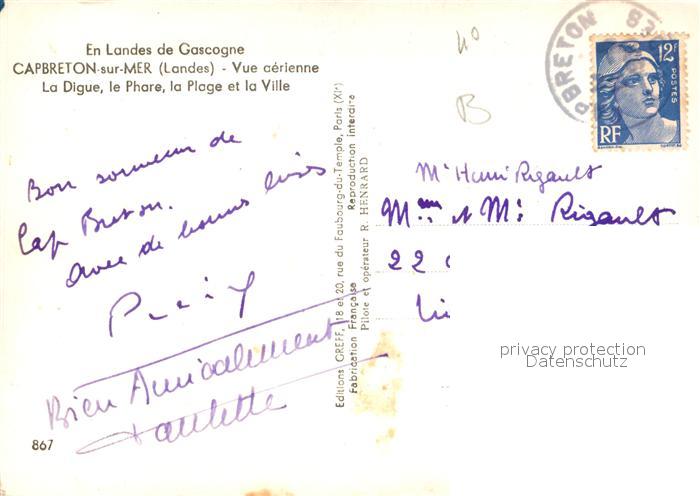 En Landes de Gascogne
CAPBRETON-sur-MER (Landes) - Vue aérienne
La Digue, le Phare, la Plage et la Ville
Bon souvenir de
Cap Breton.
avec de bonnes bises
Bien Amicalement
Paulette
867
Editions GREFF, 18 et 20, rue du Faubourg-du-Temple, Paris (XIe)
Fabrication Française Reproduction interdite
Pilote et opérateur R. HENRARD
No
B
PBRETON
12F
POSTES
RF
Mr Henri Rigault
Mme et Mr Rigault
22
privacy protection
Datenschutz